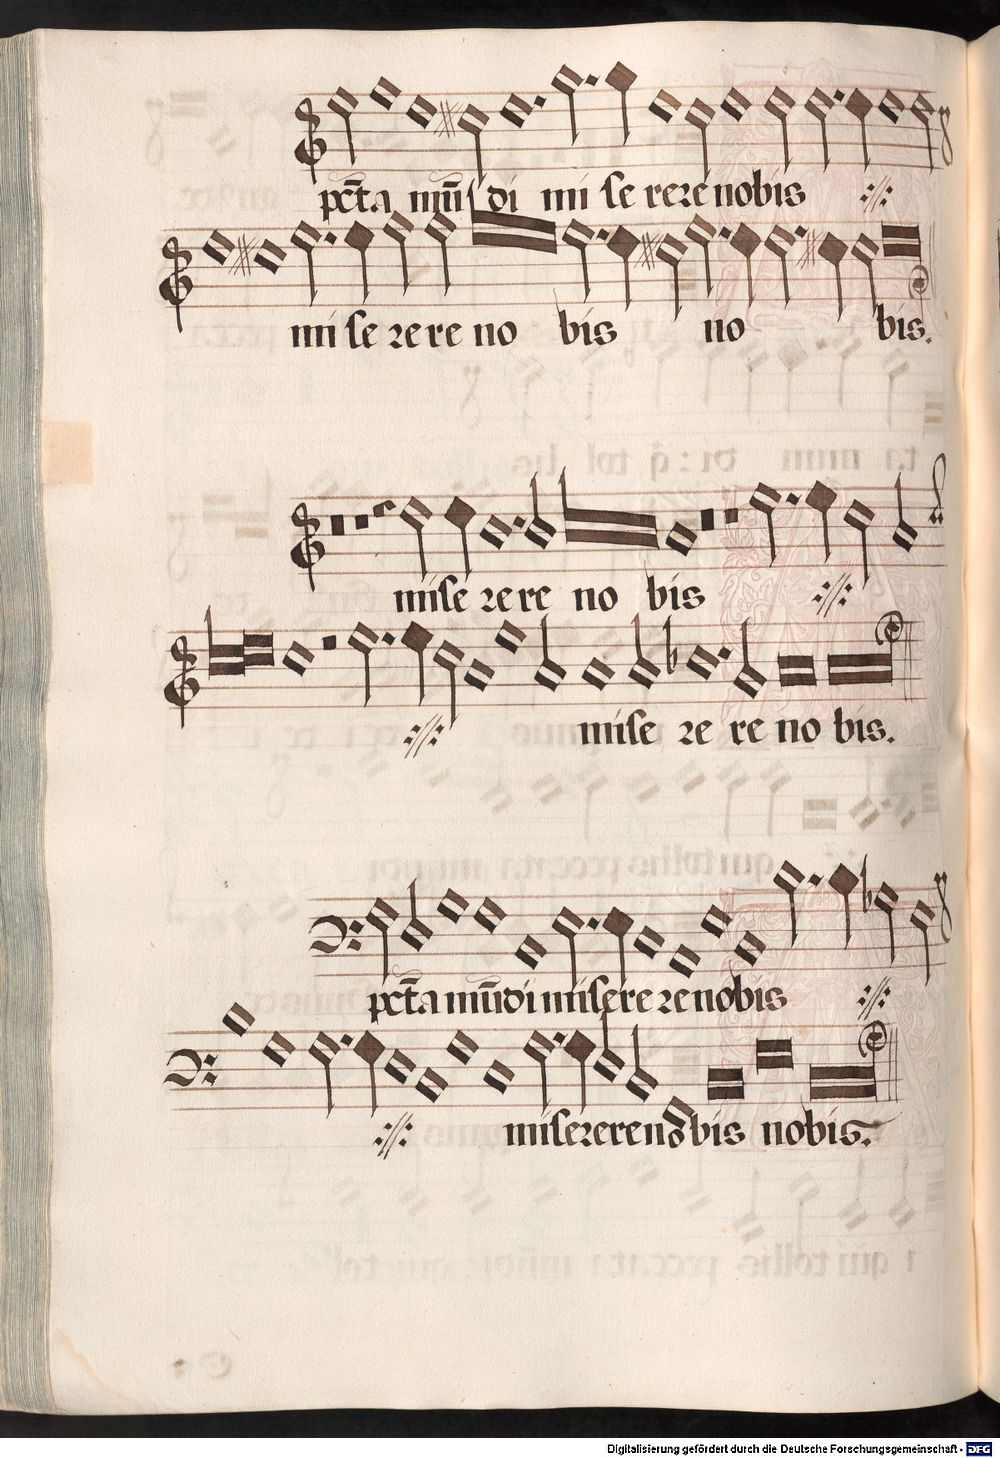 pcta mūdi mi se rere nobis
mi se rere no bis no bis.
mise rere no bis
mise re re no bis.
pcta mūdi misere re nobis
misererenobis nobis.
Digitalisierung gefördert durch die Deutsche Forschungsgemeinschaft - DFG